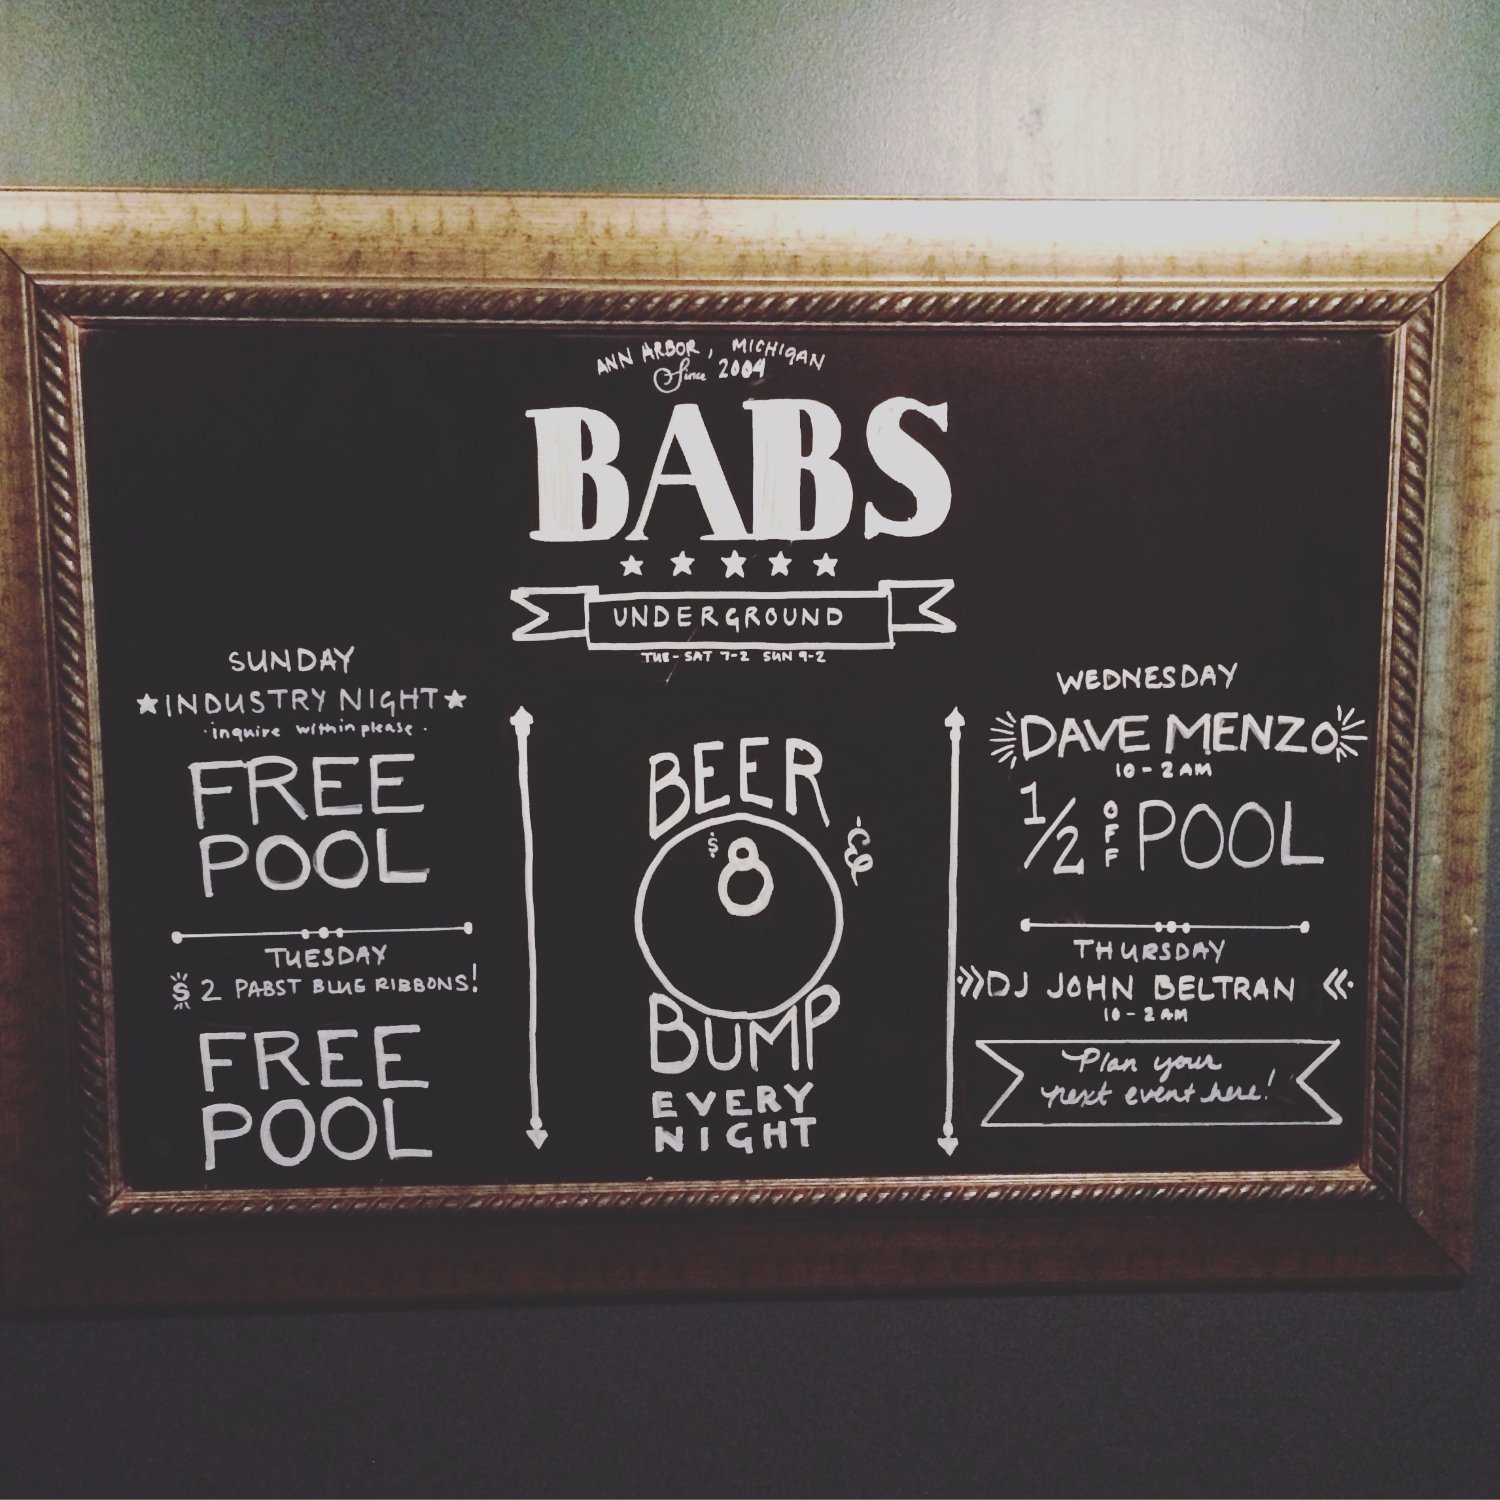 ANN ARBOR, MICHIGAN
Since 2004
BABS
UNDERGROUND
TUE-SAT 7-2 SUN 9-2
SUNDAY
INDUSTRY NIGHT
·inquire within please·
FREE
POOL
TUESDAY
$2 PABST BLUE RIBBONS!
FREE
POOL
BEER
&
$8
BUMP
EVERY
NIGHT
WEDNESDAY
DAVE MENZO
10-2AM
1/2 OFF POOL
THURSDAY
»DJ JOHN BELTRAN «
10-2AM
Plan your
next event here!